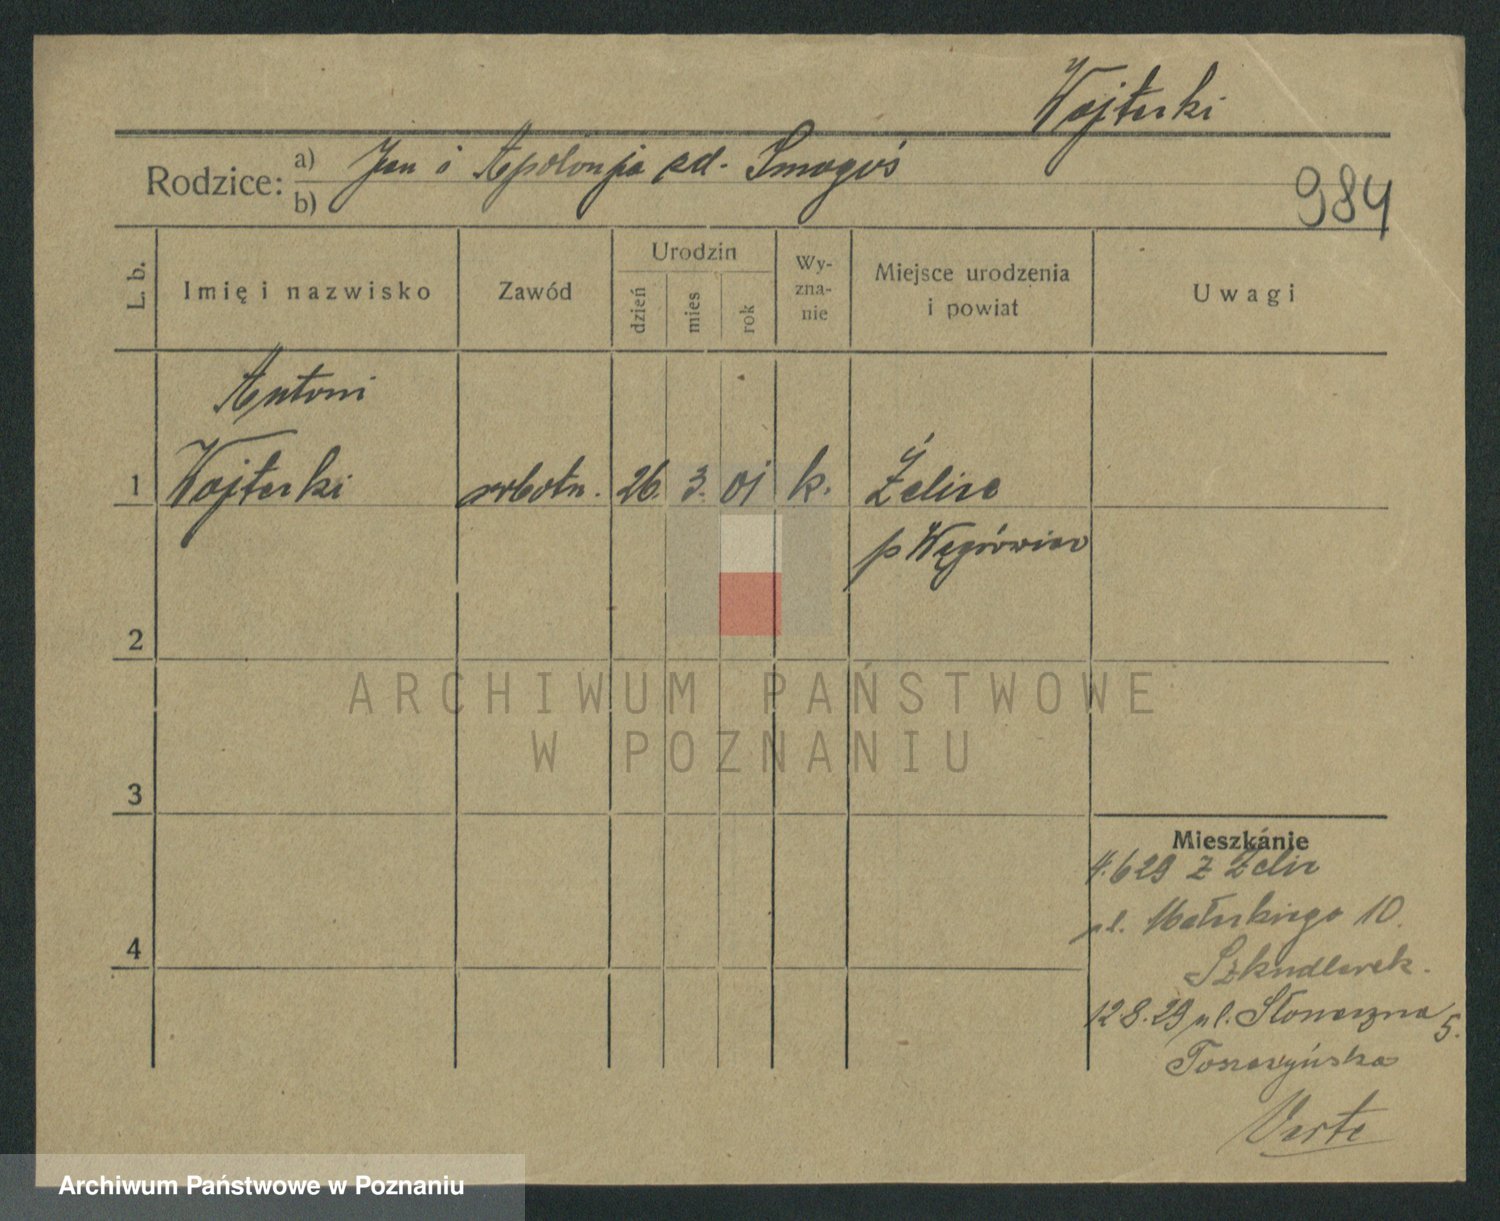 Wojterki
Rodzice: a) Jan i Apolonja zd. Smogór
b)
984
L. b.
Imię i nazwisko
Zawód
Urodzin
dzień
mies
rok
Wy-
zna-
nie
Miejsce urodzenia
i powiat
Uwagi
Antoni
1 Wojterki robotn. 26. 3. 01 k. Żelice
p Wągrówiec
2
ARCHIWUM PAŃSTWOWE
W POZNANIU
3
Mieszkánie
4.6 29 z Żelic
ul. Małeckiego 10.
4
Szkudlarek.
12.8.29 ul. Słoneczna 5.
Verte
Archiwum Państwowe w Poznaniu